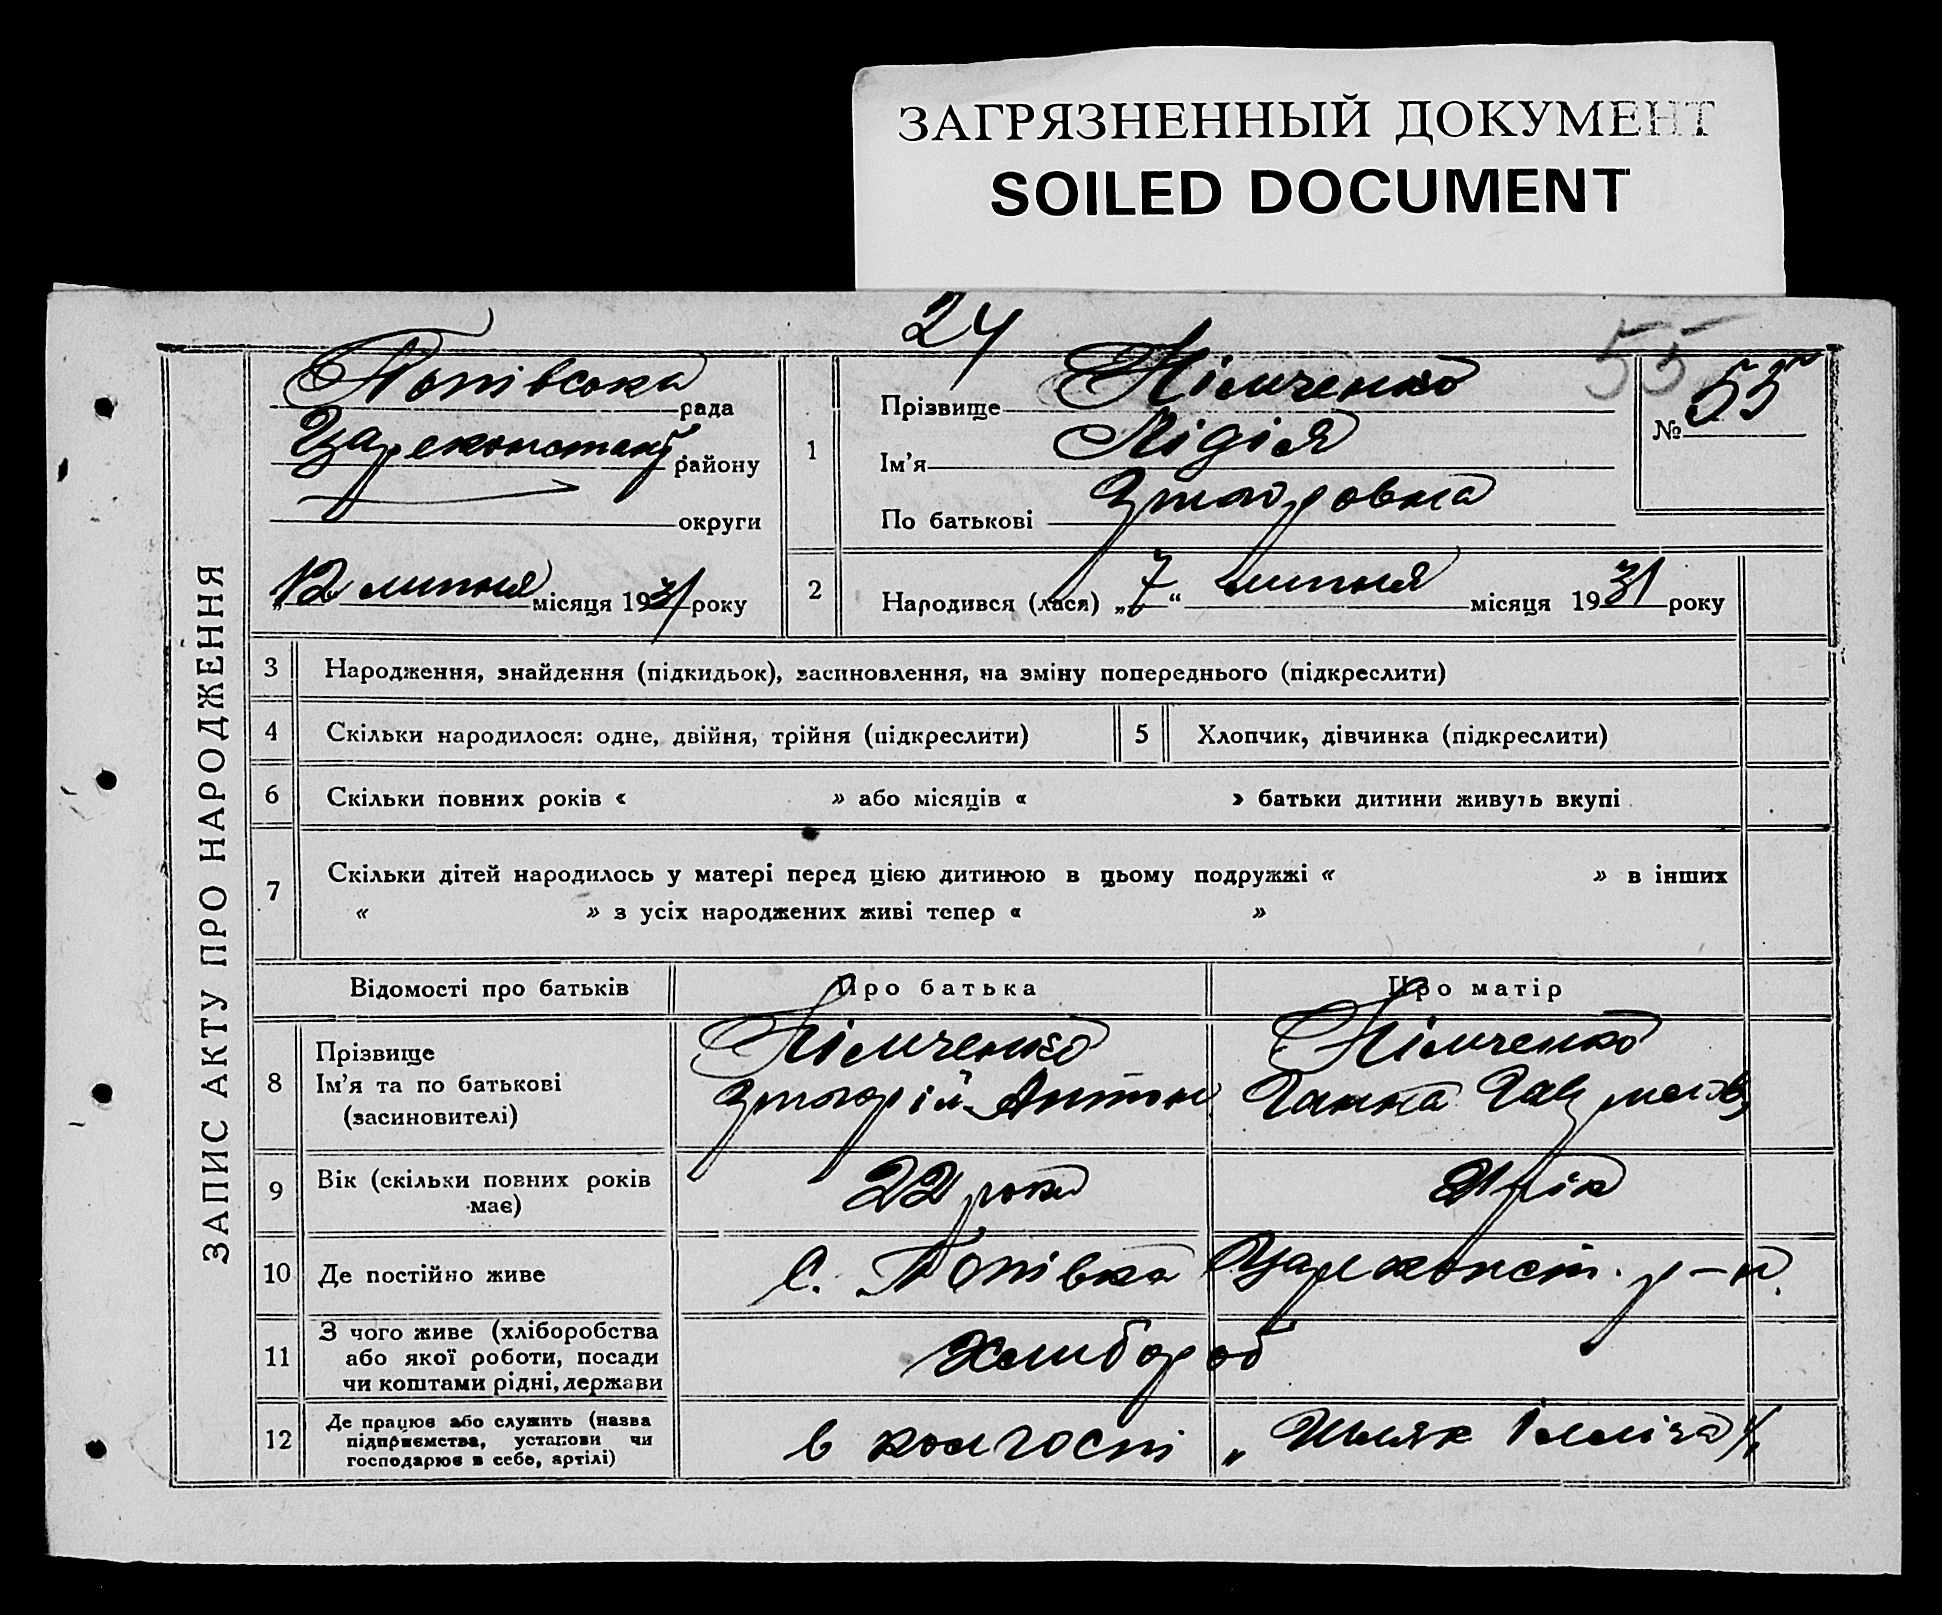 ЗАГРЯЗНЕННЫЙ ДОКУМЕНТ
SOILED DOCUMENT
24
55
ЗАПИС АКТУ ПРО НАРОДЖЕННЯ
Попівська рада
Цареконстант району
округи
"12 липня місяця 1931 року
1
Прізвище Німченко
Ім'я Лідія
По батькові Григоровна
№ 55
2 Народився (лася) „7“ липня місяця 1931 року
3 Народження, знайдення (підкидьок), засиновлення, на зміну попереднього (підкреслити)
4 Скільки народилося: одне, двійня, трійня (підкреслити)
5 Хлопчик, дівчинка (підкреслити)
6 Скільки повних років « » або місяців « » батьки дитини живуть вкупі
7 Скільки дітей народилось у матері перед цією дитиною в цьому подружжі « » в інших
« » з усіх народжених живі тепер « »
Відомості про батьків Про батька Про матір
8 Прізвище Німченко Німченко
Ім'я та по батькові Григорій Антон Ганна
(засиновителі)
9 Вік (скільки повних років 22 роки 21 рік
має)
10 Де постійно живе с. Попівка Цареконст. р-н.
11 З чого живе (хліборобства
або якої роботи, посади Хлибороб
чи коштами рідні, держави
12 Де працює або служить (назва
підприємства, установи чи в колгоспі „Шлях Ілліча"
господарює в себе, артілі)